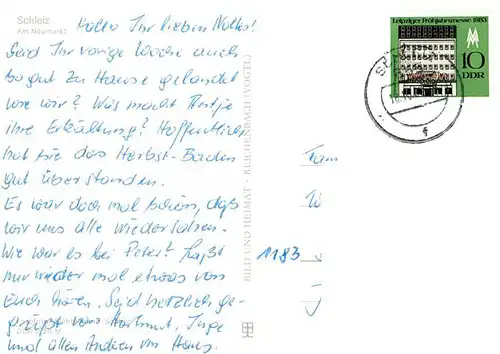 Schleiz
Am Neumarkt
Hallo Ihr lieben Noltes!
Seid Ihr vorige Woche auch
so gut zu Hause gelandet
wie wir? Was macht Antje
ihre Erkältung? Hoffentlich
hat sie das Herbst-Baden
gut überstanden.
Es war doch mal schön, daß
wir uns alle wiedersahen.
Wie war es bei Peter? Laßt
mir wieder mal etwas von
Euch hören. Seid herzlich ge-
grüßt von Hartmut, Inge
und allen Andren im Haus.
BILD UND HEIMAT · REICHENBACH (VOGTL)
Leipziger Frühjahrsmesse 1983
10
DDR
f
Fam
1183